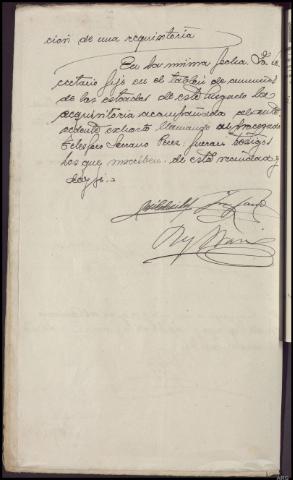 cion de una requisitoria
En la misma fecha. Yo se
cretario fijo en el tablon de anuncios
de los estrados de este Juzgado la
requisitoria acompañada al ante
cedente exhorto llamando al procesado
Telesforo Serrano Perez: fueron testigos
los que suscriben de esta vecindad y
doy fe.=